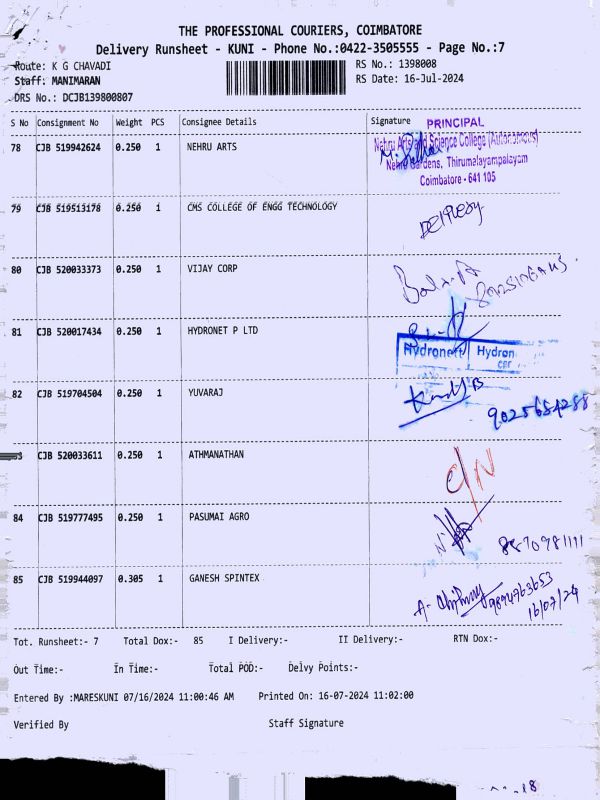 THE PROFESSIONAL COURIERS, COIMBATORE
Delivery Runsheet - KUNI - Phone No.:0422-3505555 - Page No.:7
Route: K G CHAVADI RS No.: 1398008
Staff: MANIMARAN RS Date: 16-Jul-2024
DRS No.: DCJB139800807
S No Consignment No Weight PCS Consignee Details Signature
PRINCIPAL
78 CJB 519942624 0.250 1 NEHRU ARTS Nehru Arts and Science College (Autonomous)
Nehru Gardens, Thirumalayampalayam
Coimbatore - 641 105
79 CJB 519513178 0.250 1 CMS COLLEGE OF ENGG TECHNOLOGY
80 CJB 520033373 0.250 1 VIJAY CORP
81 CJB 520017434 0.250 1 HYDRONET P LTD
Hydronet Hydron
82 CJB 519704504 0.250 1 YUVARAJ
9025684288
83 CJB 520033611 0.250 1 ATHMANATHAN
84 CJB 519777495 0.250 1 PASUMAI AGRO
8870981111
85 CJB 519944097 0.305 1 GANESH SPINTEX
9894763653
16/07/24
Tot. Runsheet:- 7 Total Dox:- 85 I Delivery:- II Delivery:- RTN Dox:-
Out Time:- In Time:- Total POD:- Delvy Points:-
Entered By :MARESKUNI 07/16/2024 11:00:46 AM Printed On: 16-07-2024 11:02:00
Verified By Staff Signature